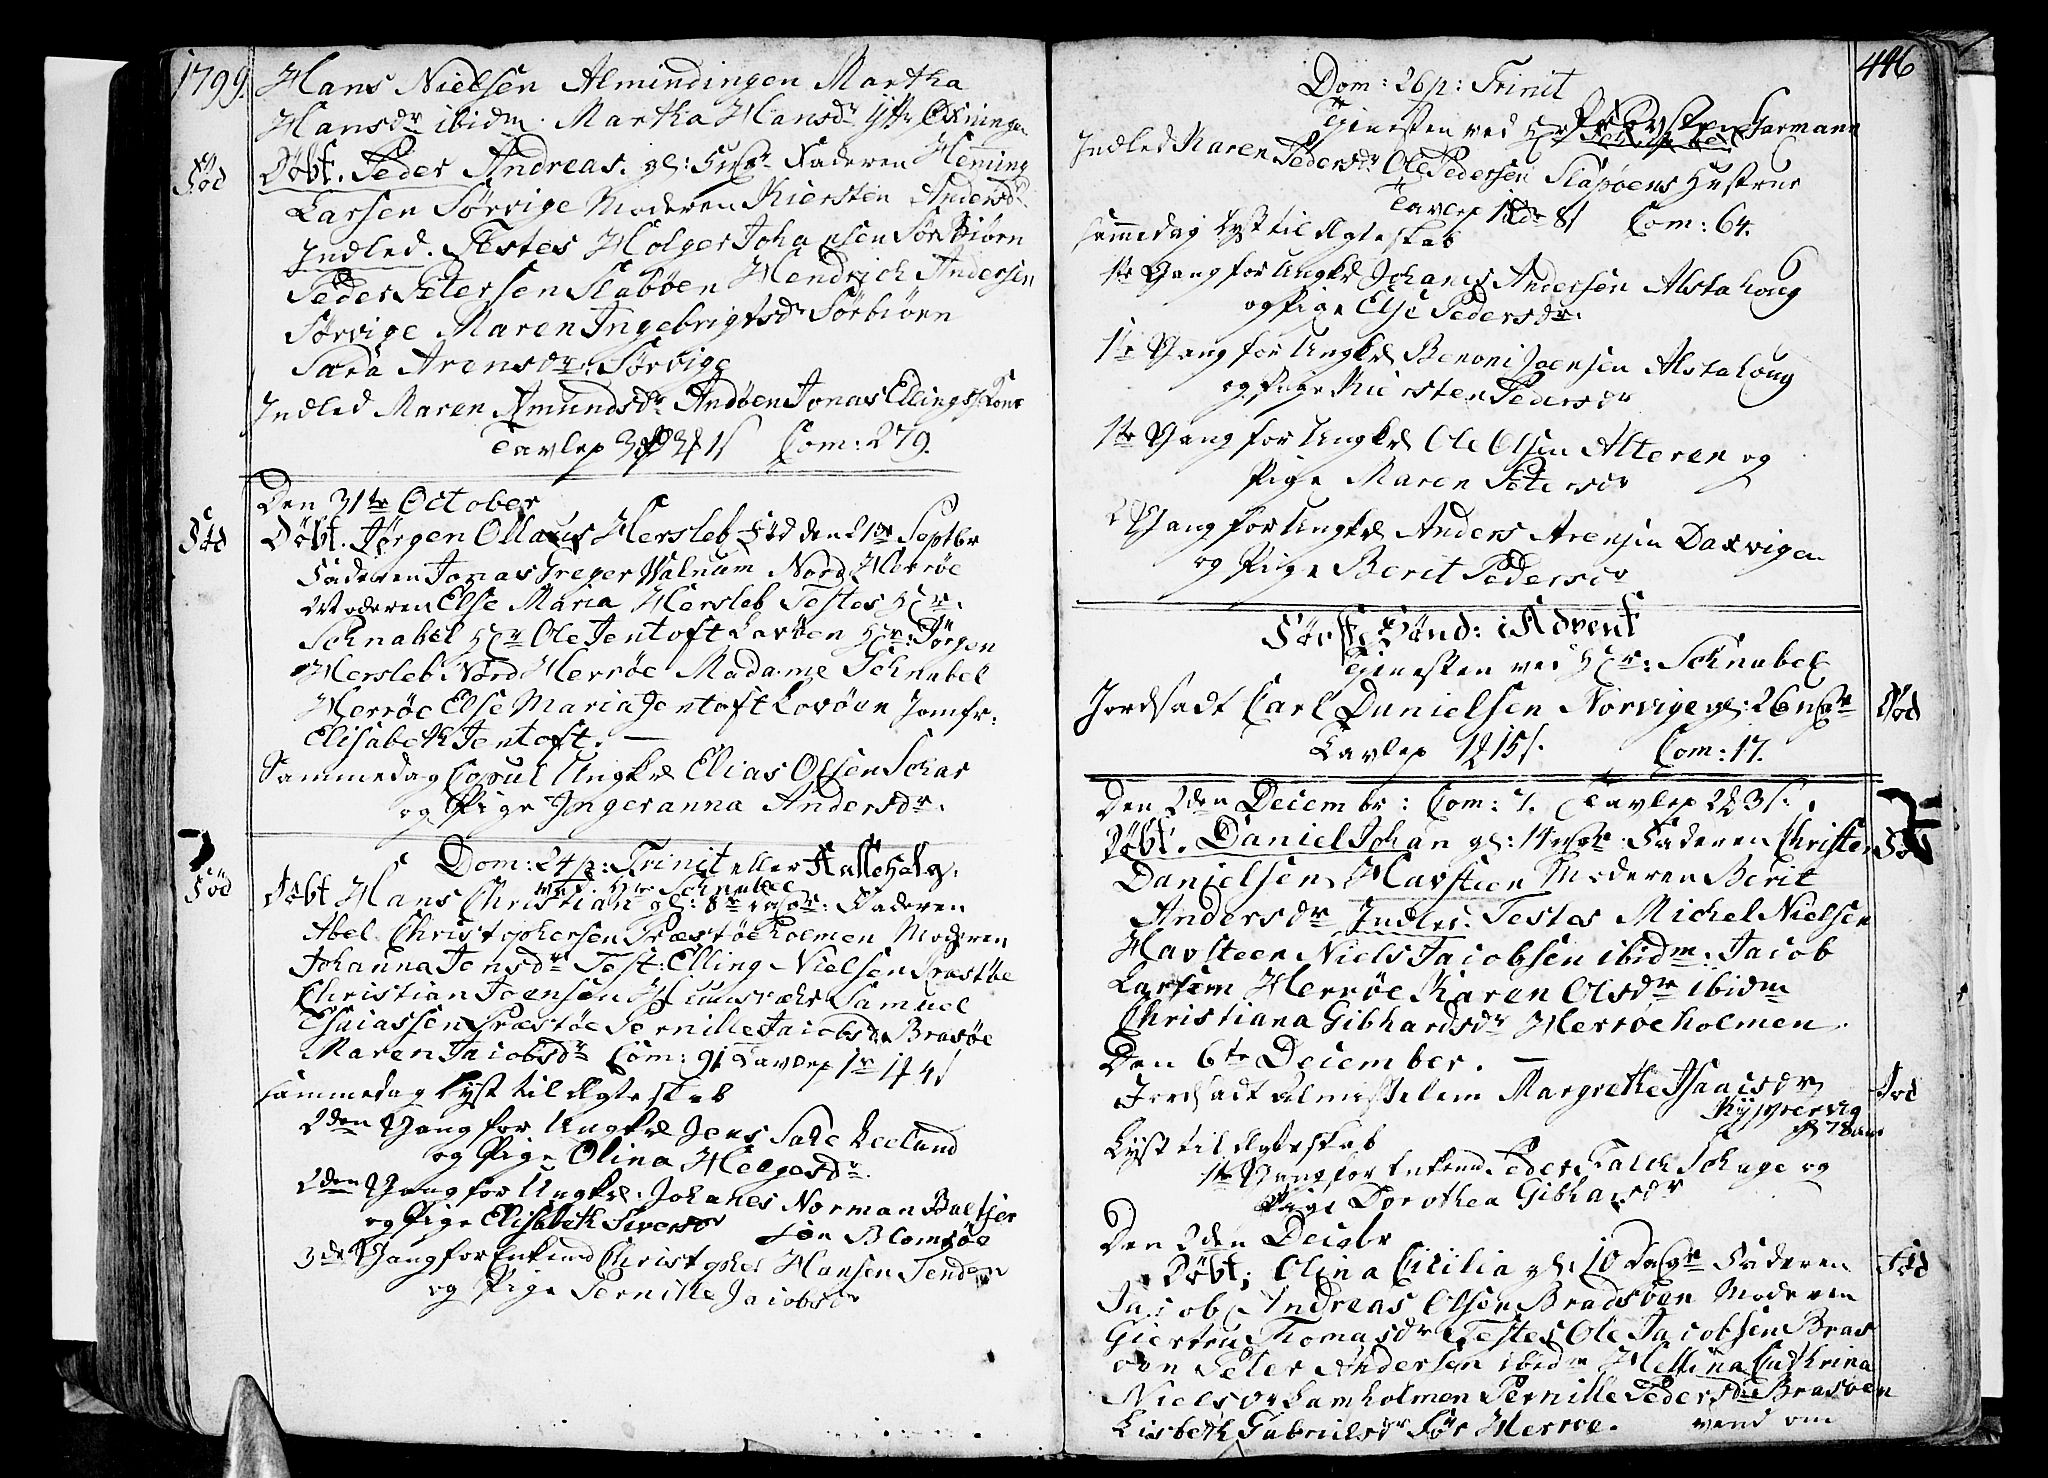 1799.
Hans Nielsen Almindingen Martha
Hansdr ibidm. Martha Hansdr
Fød
Døbt. Peder Andreas. gl: Faderen Heming
Larsen Sørvige Moderen Kiersten Andersdr
Indled. Testes Holger Johansen Sør Biørn
Peder Petersen Slabøen Hendrich Andersen
Sørvige Maren Ingebrigtsdr Sørbiørn
Sara Arensdr: Sørvige
Indled Maren Amundsdr Andøen Jonas Ellings Kone
Tavlep Com: 279.
Den 31te October
Fød
Døbt. Jørgen Ollaus Hersleb Fød den 21de Septbr
Faderen Jonas Greger Walnum Nord Herrøe
Moderen Else Maria Hersleb Testes Hr.
Schnabel Hr Ole Jentoft Lovøen Hr: Jørgen
Hersleb Nord Herrøe Madame Schnabel
Herrøe Else Maria Jentoft Lovøen Jomfr:
Elisabeth Jentoft. —
Sammedag Copul Ungkl Elias Olsen Schar
og Pige Ingeranna Andersdr.
Dom: 24 p: Trinit eller Hallehelg.
ved Hr Schnabel
Fød
Døbt Hans Christian gl: 8te dage: Faderen
Abel Christophersen Præstøeholmen Moderen
Johanna Jensdr Test: Elling Nielsen Præstøe
Christian Joensen Samuel
Esaiassen Præstøe Pernille Jacobsdr Brasøe
Maren Jacobsdr Com: 91 Tavlep
Sammedag Lyst til Ægteskab
2den Gang for Ungkl Jens Leeland
og Pige Olina Helgesdr.
2den Gang for Ungkl: Johanes Norman Baltser
og Pige Elisabeth Siversdr sen Blomsøe
3de Gang for Enkemd Christopher Hansen Tenden
og Pige Pernille Jacobsdr
446
Dom: 26 p: Trinit
Tienesten ved Hr Garmann
Indled Karen Pedersdr Ole Pedersen Slapøens Hustrue
Tavlep Com: 64.
Sammedag Lyst til Ægteskab
1te Gang for Ungkl Johanes Andersen Alstahoug
og Pige Else Pedersdr.
1te Gang for Ungkl Benoni Joensen Alstahoug
og Pige Kiersten Pedersdr
1te Gang for Ungkl Ole Olsen Alteren og
Pige Maren Petersdr
2 Gang for Ungkl Anders Arensen Daxvigen
og Pige Berit Pedersdr
Første Sønd: i Advent
Tienesten ved Hr: Schnabel
Jordsadt Carl Danielsen Norvige gl: 26
Død
Tavlep Com: 17.
Den 2den Decembr: Com: 7. Tavlep
Døbt. Daniel Johan gl: 14 Faderen Christen
Fød
Danielsen Havsteen Moderen Berit
Andersdr Indled. Testes Michel Nielsen
Havsteen Niels Jacobsen ibidm: Jacob
Larsen Herrøe Karen Olsdr ibidm
Christiana Gibhardsdr Herrøeholmen.
Den 6te December. —
Jordsadt Almislem Margrethe Isaacsdr
Død
78 aar
Lyst til Ægteskab
1te Gang for Enkemd Peder Falch Schage og
Pige Dorothea Gibharsdr
Den 2den Decbr
Døbt; Olina Cicilia gl: 10 dage Faderen
Fød
Jacob Andreas Olsen Bradsøen Moderen
Giertru Thomasdr Testes Ole Jacobsen Bras
øen Peter Andersen ibidm Mettina Cathrina
Nielsdr Lamholmen Pernille Pedersdr Brasøen
Lisbeth Gabrielsdr Sør Herrøe. vend om